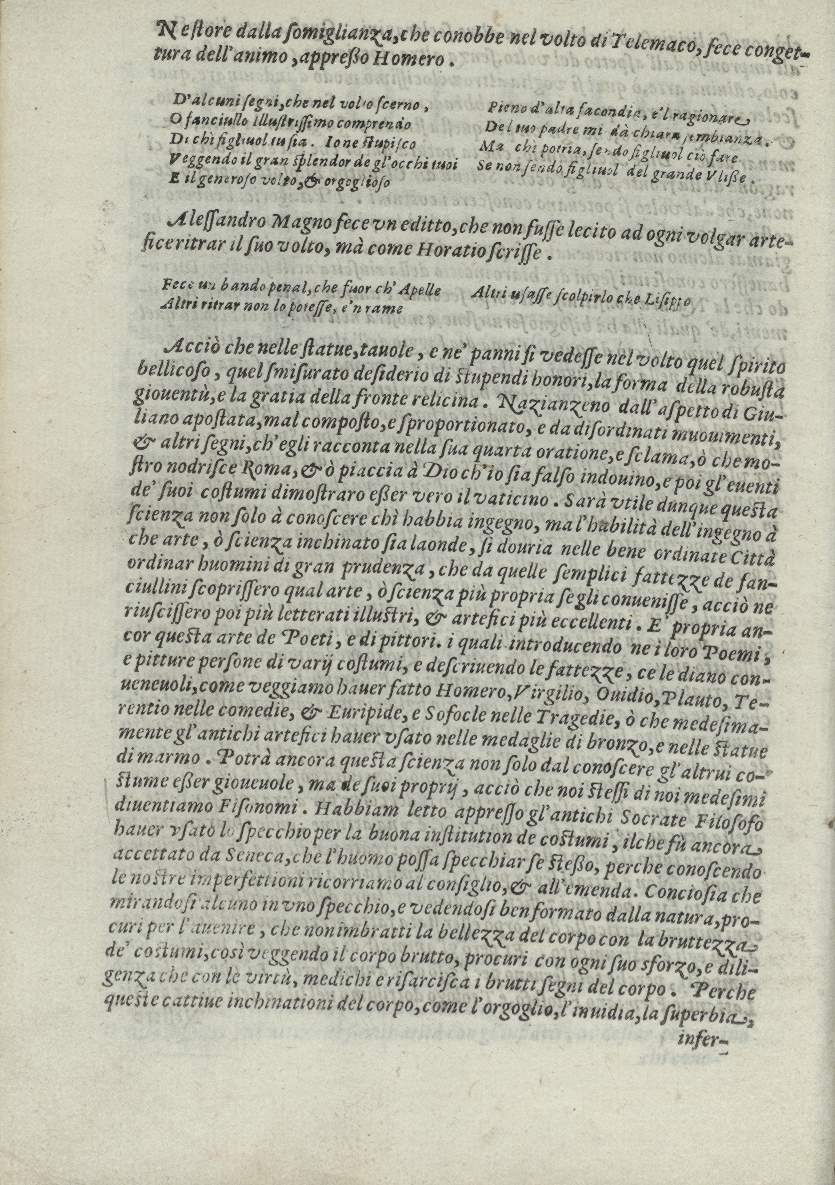 Nestore dalla somiglianza, che conobbe nel volto di Telemaco, fece conget-
tura dell'animo, appreßo Homero.
D'alcuni segni, che nel volto scerno,
O fanciullo Illustrissimo comprendo
Di chi figliuol tu sia. Io ne stupisco
Veggendo il gran splendor de gl'occhi tuoi
E il generoso volto, & orgoglioso
Pieno d'alta facondia, e'l ragionare
Del tuo padre mi dà chiara sembianza.
Ma chi potria, sendo figliuol ciò fare
Se non sendo figliuol del grande Vliße.
Alessandro Magno fece vn editto, che non fusse lecito ad ogni volgar arte-
fice ritrar il suo volto, mà come Horatio scrisse.
Fece un bando penal, che fuor ch'Apelle
Altri ritrar non lo potesse, e'n rame
Altri usasse scolpirlo che Lisippo
Acciò che nelle statue, tauole, e ne' panni si vedesse nel volto quel spirito
bellicoso, quel smisurato desiderio di stupendi honori, la forma della robusta
giouentù, e la gratia della fronte relicina. Nazianzeno dall'aspetto di Giu-
liano apostata, mal composto, e sproportionato, e da disordinati muouimenti,
& altri segni, ch'egli racconta nella sua quarta oratione, esclama, ò che mo-
stro nodrisce Roma, & ò piaccia à Dio ch'io sia falso indouino, e poi gl'euenti
de' suoi costumi dimostraro eßer vero il vaticino. Sarà vtile dunque questa
scienza non solo à conoscere chì habbia ingegno, ma l'habilità dell'ingegno à
che arte, ò scienza inchinato sia laonde, si douria nelle bene ordinate Città
ordinar huomini di gran prudenza, che da quelle semplici fattezze de fan-
ciullini scoprissero qual arte, ò scienza più propria se gli conuenisse, acciò ne
riuscissero poi più letterati illustri, & artefici più eccellenti. E' propria an-
cor questa arte de Poeti, e di pittori. i quali introducendo ne i loro Poemi,
e pitture persone di varij costumi, e descriuendo le fattezze, ce le diano con-
ueneuoli, come veggiamo hauer fatto Homero, Virgilio, Ouidio, Plauto, Te-
rentio nelle comedie, & Euripide, e Sofocle nelle Tragedie, ò che medesima-
mente gl'antichi artefici hauer vsato nelle medaglie di bronzo, e nelle statue
di marmo. Potrà ancora questa scienza non solo dal conoscere gl'altrui co-
stume eßer gioueuole, ma de suoi proprij, acciò che noi stessi di noi medesimi
diuentiamo Fisonomi. Habbiam letto appresso gl'antichi Socrate Filosofo
hauer vsato lo specchio per la buona institution de costumi, ilche fù ancora
accettato da Seneca, che l'huomo possa specchiar se steßo, perche conoscendo
le nostre imperfettioni ricorriamo al consiglio, & all'emenda. Conciosia che
mirandosi alcuno in vno specchio, e vedendosi ben formato dalla natura, pro-
curi per l'auenire, che non imbratti la bellezza del corpo con la bruttezza
de' costumi, così veggendo il corpo brutto, procuri con ogni suo sforzo, e dili-
genza che con le virtù, medichi e risarcisca i brutti segni del corpo. Perche
queste cattiue inchinationi del corpo, come l'orgoglio, l'inuidia, la superbia,
infer-